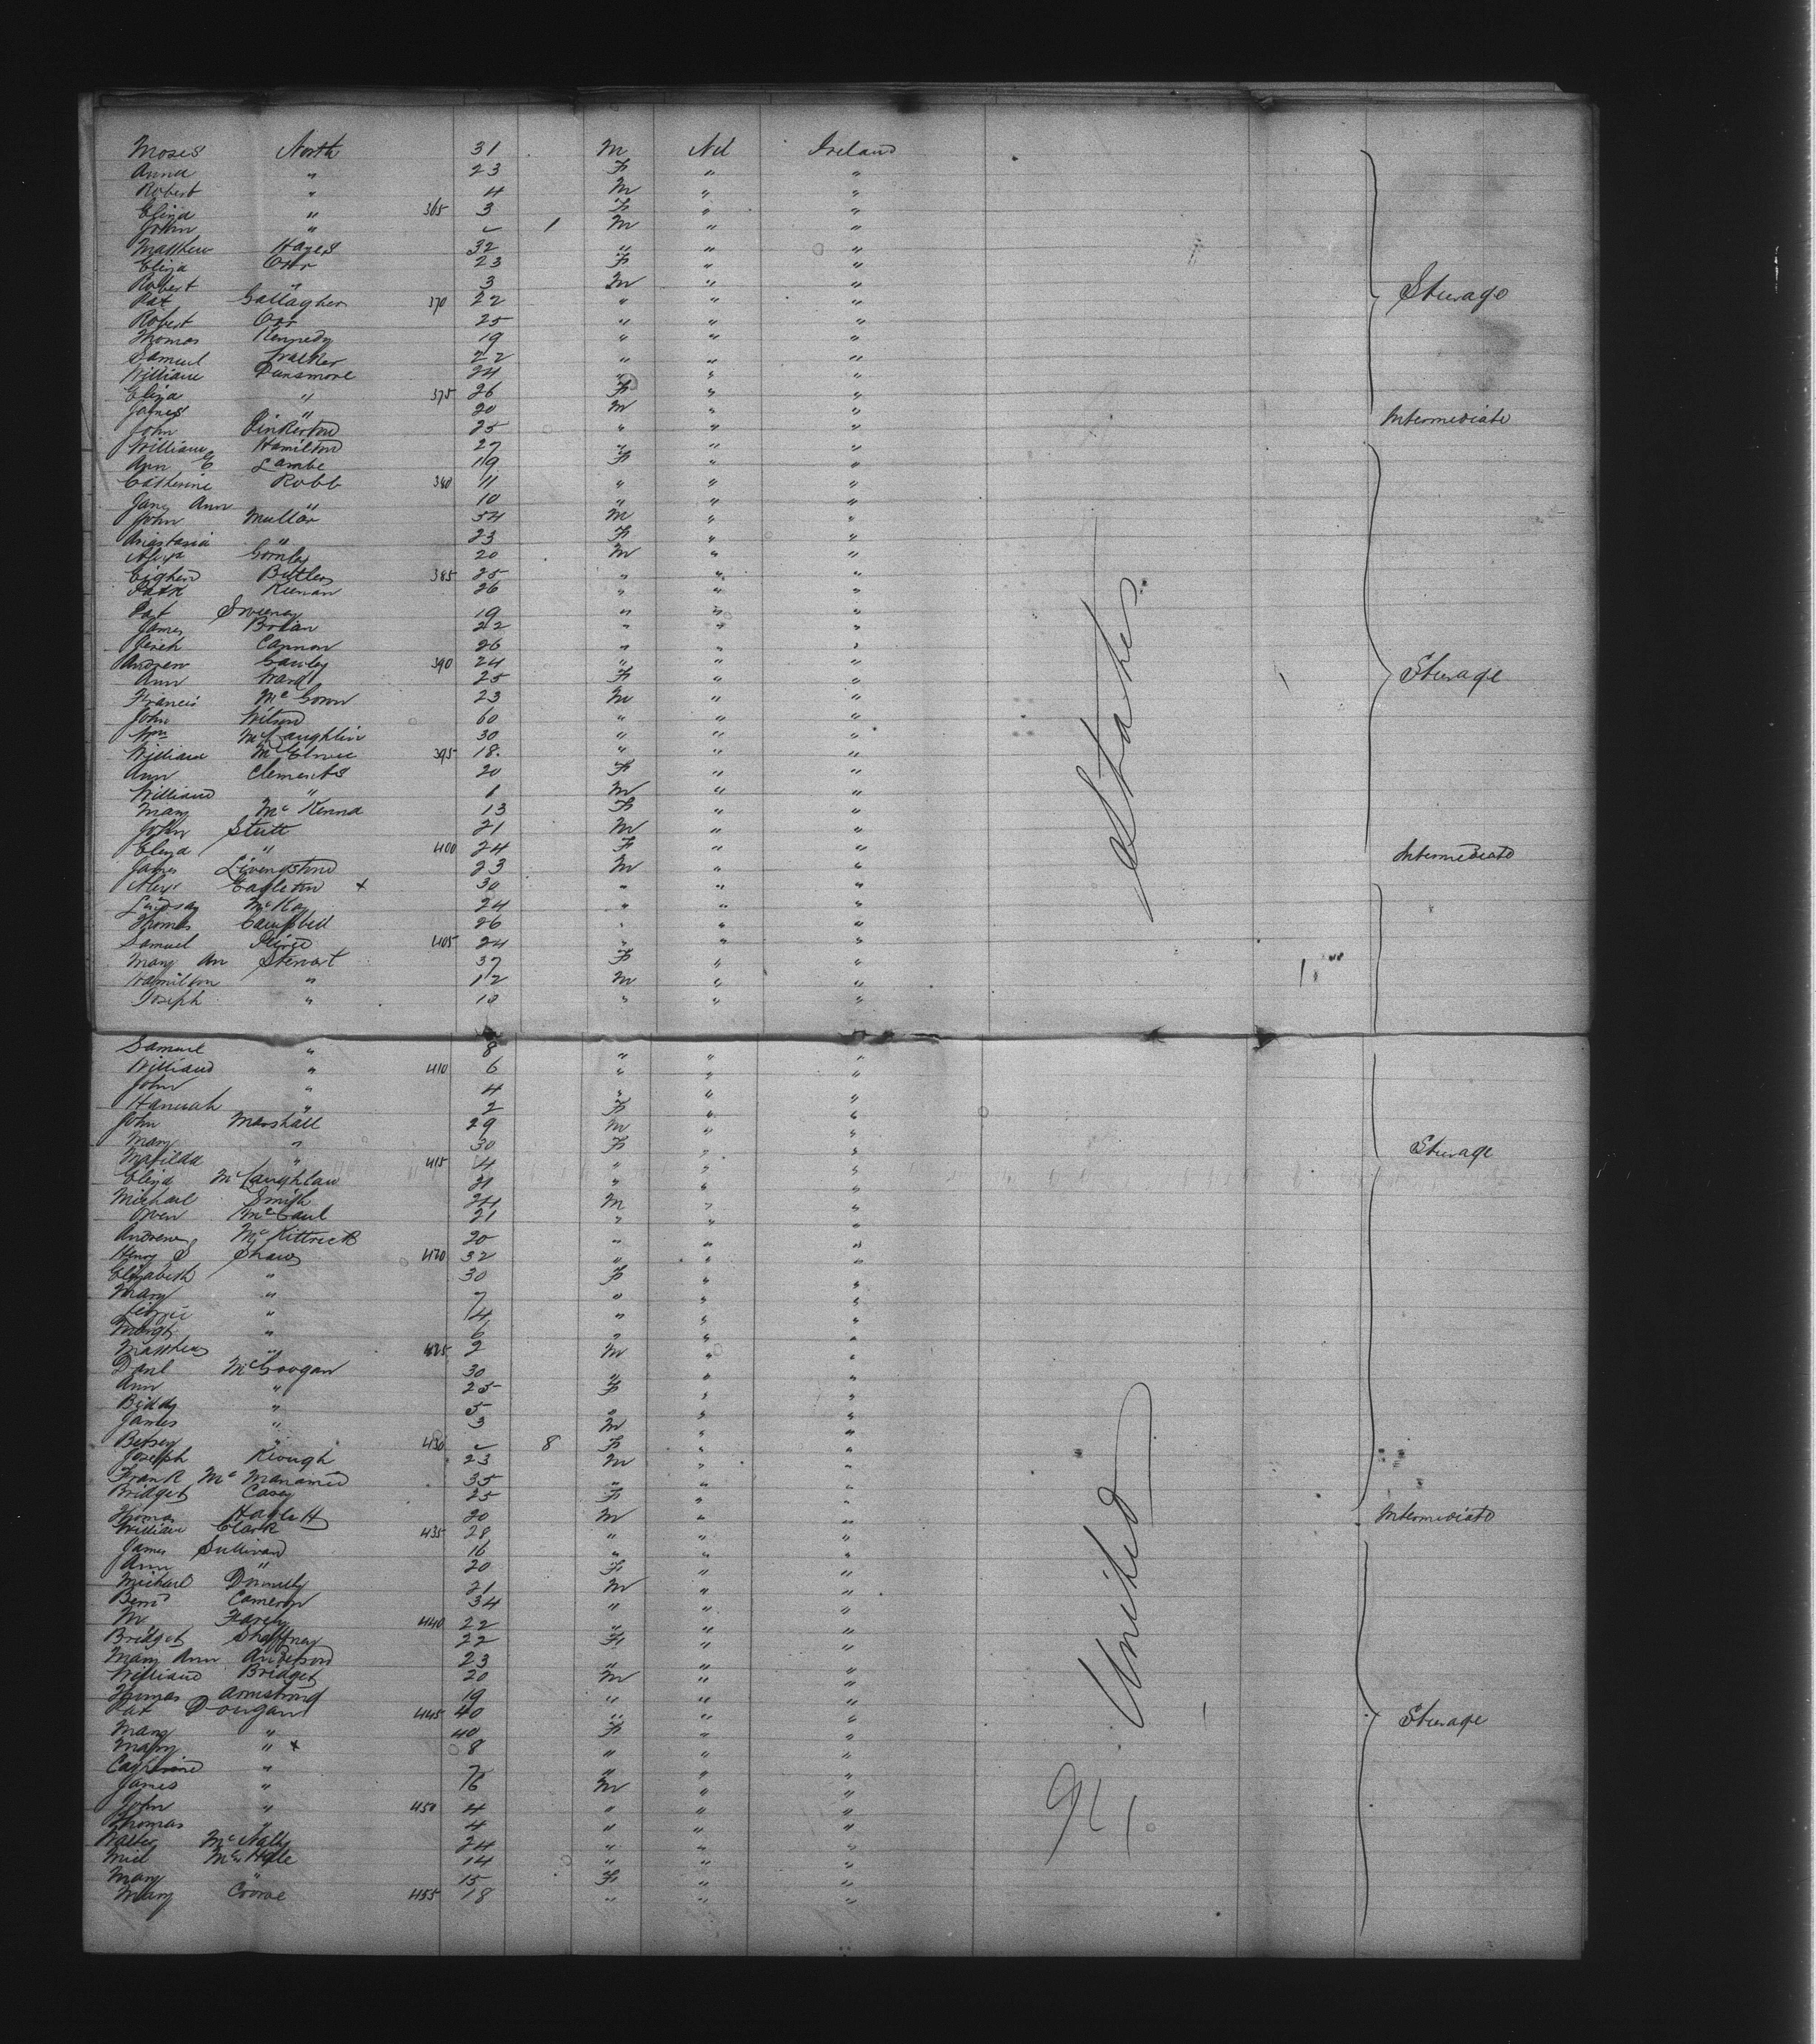 Moses North 31 M Nil Ireland
Anna " 23 F " "
Robert " 4 M " "
Eliza " 365 3 F " "
John " 1 M " "
Matthew Hayes 32 " " "
Eliza Orr 23 F " "
Robert " 3 M " "
Steerage
Pat Gallagher 370 22 " " "
Robert Orr 25 " " "
Thomas Kennedy 19 " " "
Samuel Walker 22 " " "
William Dunsmore 24 " " "
Eliza " 375 26 F " "
James " 20 M " "
Intermediate
John Pinkerton 25 " " "
William Hamilton 27 " " "
Ann E Lambe 19 F " "
Catherine Robb 380 11 " " "
Jane Ann " 10 " " "
John Mullar 54 M " "
Anastasia " 23 F " "
Alexr Gornley 20 M " "
Butler 385 25 " " "
Patk Kiernan 26 " " "
Pat Sweeney 19 " " "
James Brian 22 " " "
Cannon 26 " " "
Andrew Gawley 390 24 " " "
Ann Ward 25 F " "
Steerage
Francis McGown 23 M " "
John Wilson 60 " " "
Wm McLaughlin 30 " " "
William 395 18 " " "
Ann Clements 20 F " "
William " 1 M " "
Mary McKenna 13 F " "
John Stutt 21 M " "
Eliza " 400 24 F " "
Intermediate
James Livingstone 23 M " "
Alexr Eagleton x 30 " " "
Lindsay McKay 24 " " "
Thomas Campbell 26 " " "
Samuel 405 24 " " "
Mary An Stewart 37 F " "
Hamilton " 12 M " "
Joseph " 10 " " "
States
Samuel " 8 " " "
William " 410 6 " " "
John " 4 " " "
Hannah " 2 F " "
John Marshall 29 M " "
Mary " 30 F " "
Steerage
Matilda " 415 4 " " "
Eliza McLaughlan 21 " " "
Michael Smith 24 M " "
Owen McCaul 21 " " "
Andrew McKittrick 20 " " "
Henry S Shaw 420 32 " " "
Elizabeth " 30 F " "
Mary " 7 " " "
" 14 " " "
Margt " 6 " " "
Matthew " 425 2 M " "
Danl McGoogan 30 " " "
Ann " 25 F " "
Biddy " 5 " " "
James " 3 M " "
Betsey " 430 8 F " "
Joseph Keough 23 M " "
Frank 35 " " "
Bridget Casey 25 F " "
Thomas 20 M " "
Intermediate
William Clark 435 28 " " "
James Sullivan 16 " " "
Ann " 20 F " "
Michael Donnelly 21 M " "
Bernd Cameron 34 " " "
440 22 " " "
Bridget Shaffney 22 F " "
Mary Ann Anderson 23 " " "
William Bridget 20 M " "
Thomas Armstrong 19 " " "
Pat Dougan 445 40 " " "
Steerage
Mary " 40 F " "
Mary " x 8 " " "
Catherine " 7 " " "
James " 6 M " "
John " 450 4 " " "
Thomas " 4 " " "
Walter McNally 24 " " "
Michl McHale 14 " " "
Mary " 15 F " "
Mary Crowe 455 18 " " "
United